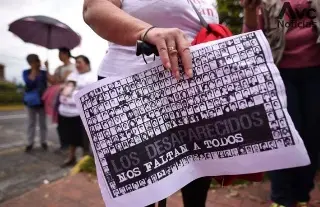 AVC
Noticias
LOS DESAPARECIDOS
NOS FALTAN A TODOS